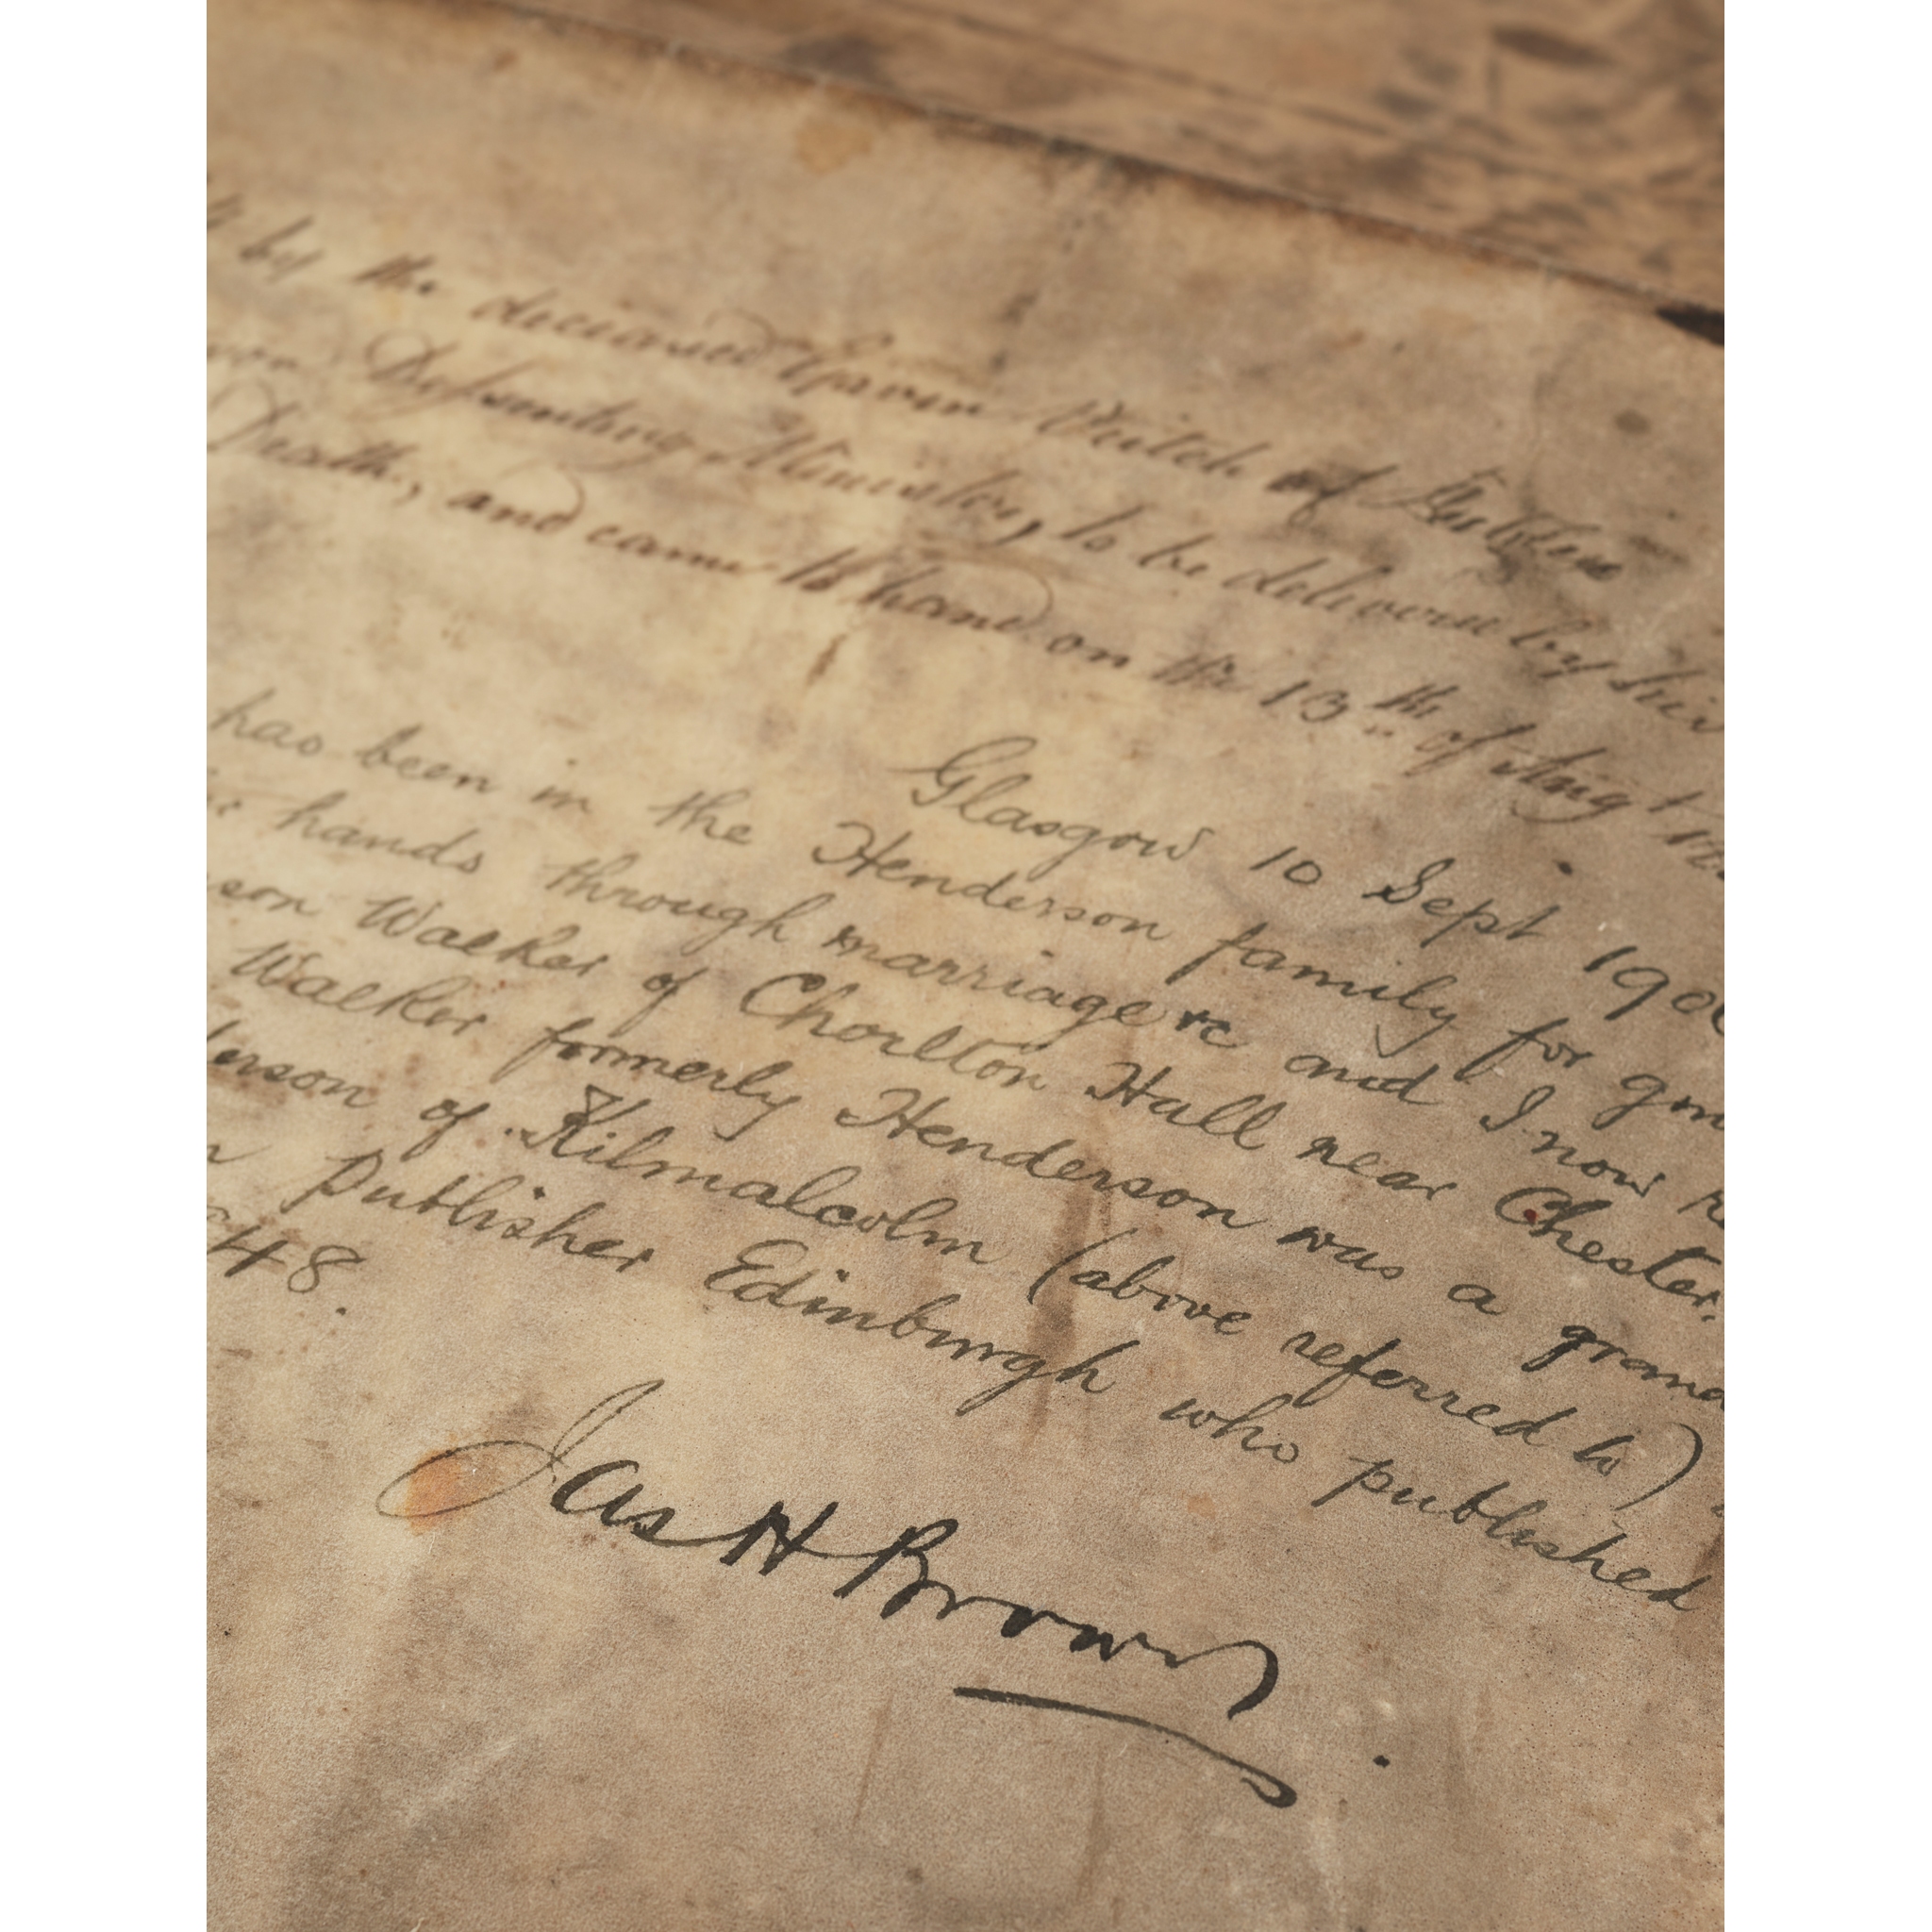 by the deceased Veitch of
Dissenting Minister, to be delivered by
Death, and came to hand on the 13th of Augt
Glasgow 10 Sept 190
has been in the Henderson family for
hands through marriage &c and I now
son Walker of Chorlton Hall near Chester.
Walker formerly Henderson was a grand
derson of Kilmalcolm (above referred to)
Publisher Edinburgh who published
48.
Jas H Brown